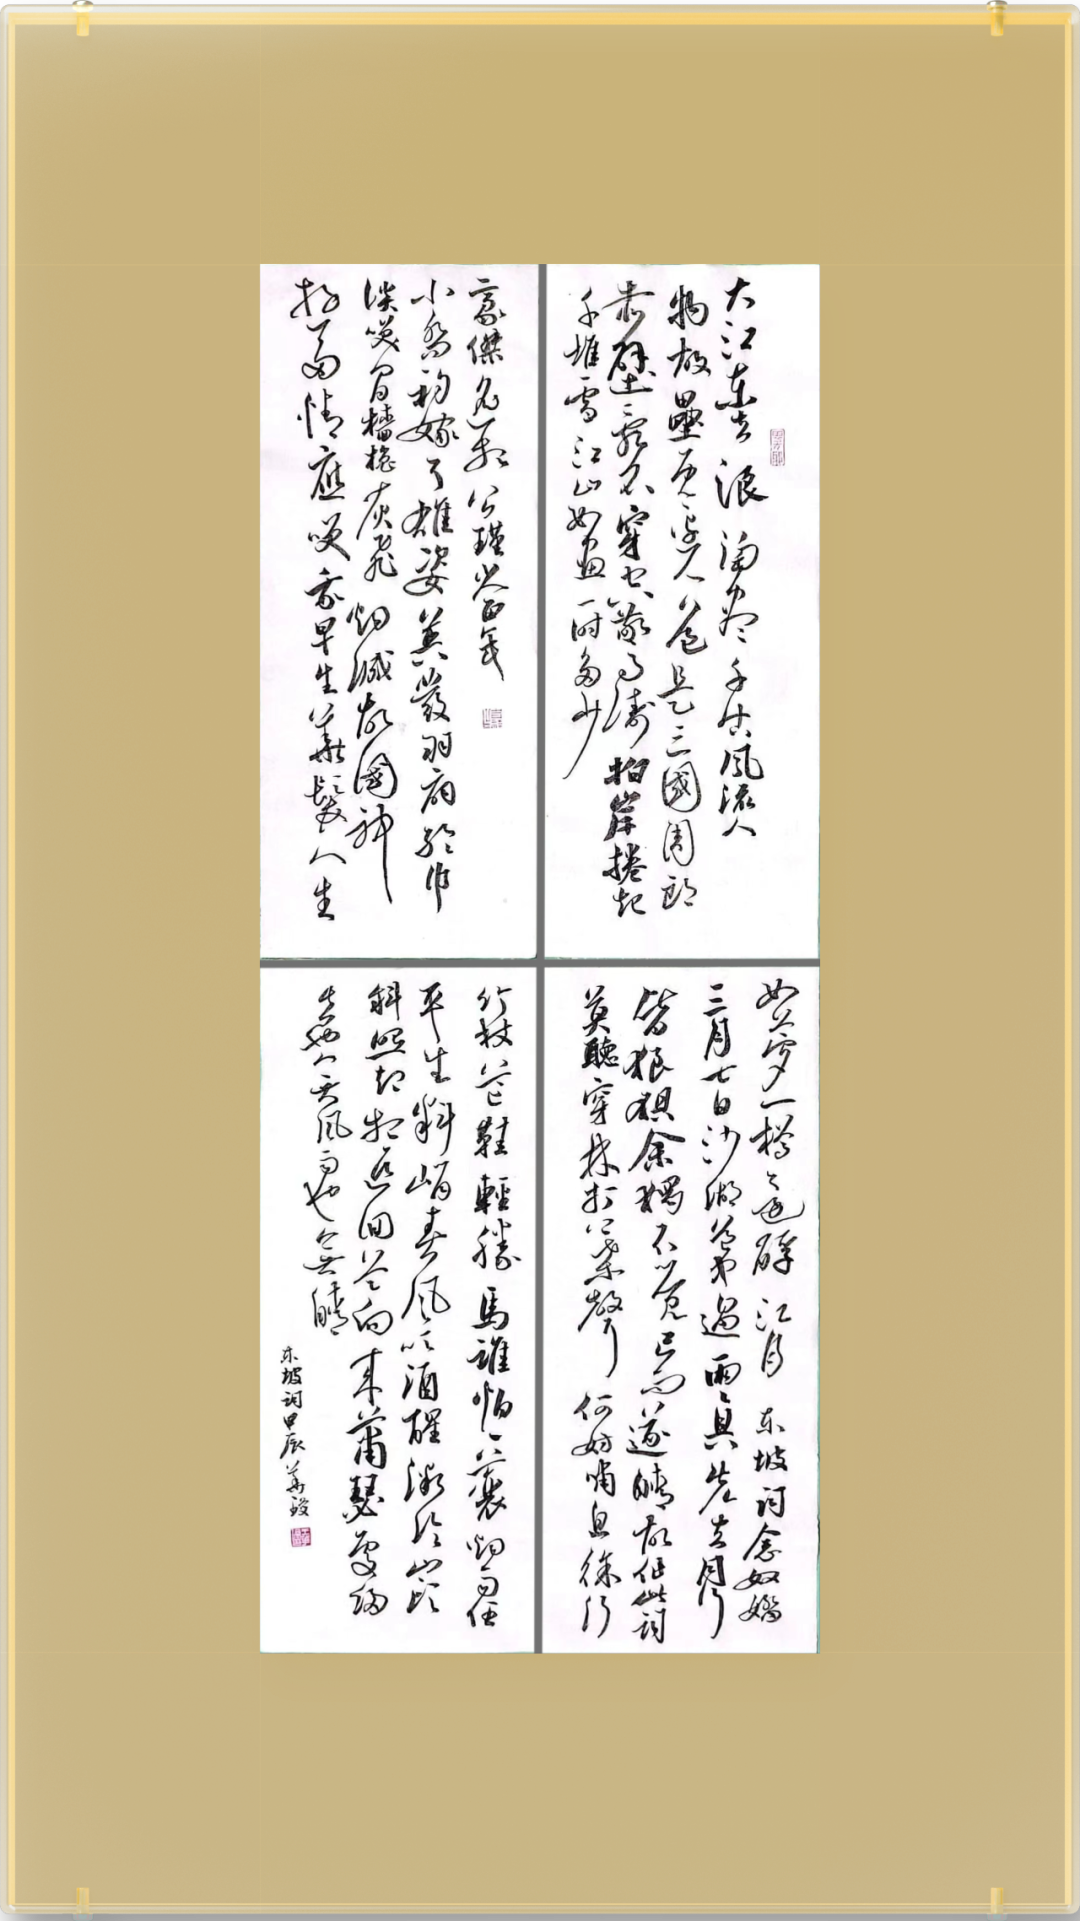 大江东去浪淘尽千古风流人
物故垒西边人道是三國周郎
赤壁乱石穿空惊涛拍岸捲起
千堆雪江山如画一时多少
豪傑遥想公瑾当年
小乔初嫁了雄姿英發羽扇纶巾
淡笑间樯橹灰飞烟滅故國神
多情應笑我早生華髮人生
如梦一樽还酹江月 东坡词念奴娇
三月七日沙湖道中遇雨雨具先去同行
皆狼狽余獨不觉已而遂晴故作此词
莫聽穿林打葉聲何妨啸且徐行
竹杖芒鞋輕勝馬誰怕一蓑烟雨任
平生料峭春风吹酒醒微冷山头
斜照却相迎回首向来蕭瑟處归
去也无风雨也無晴
东坡词甲辰